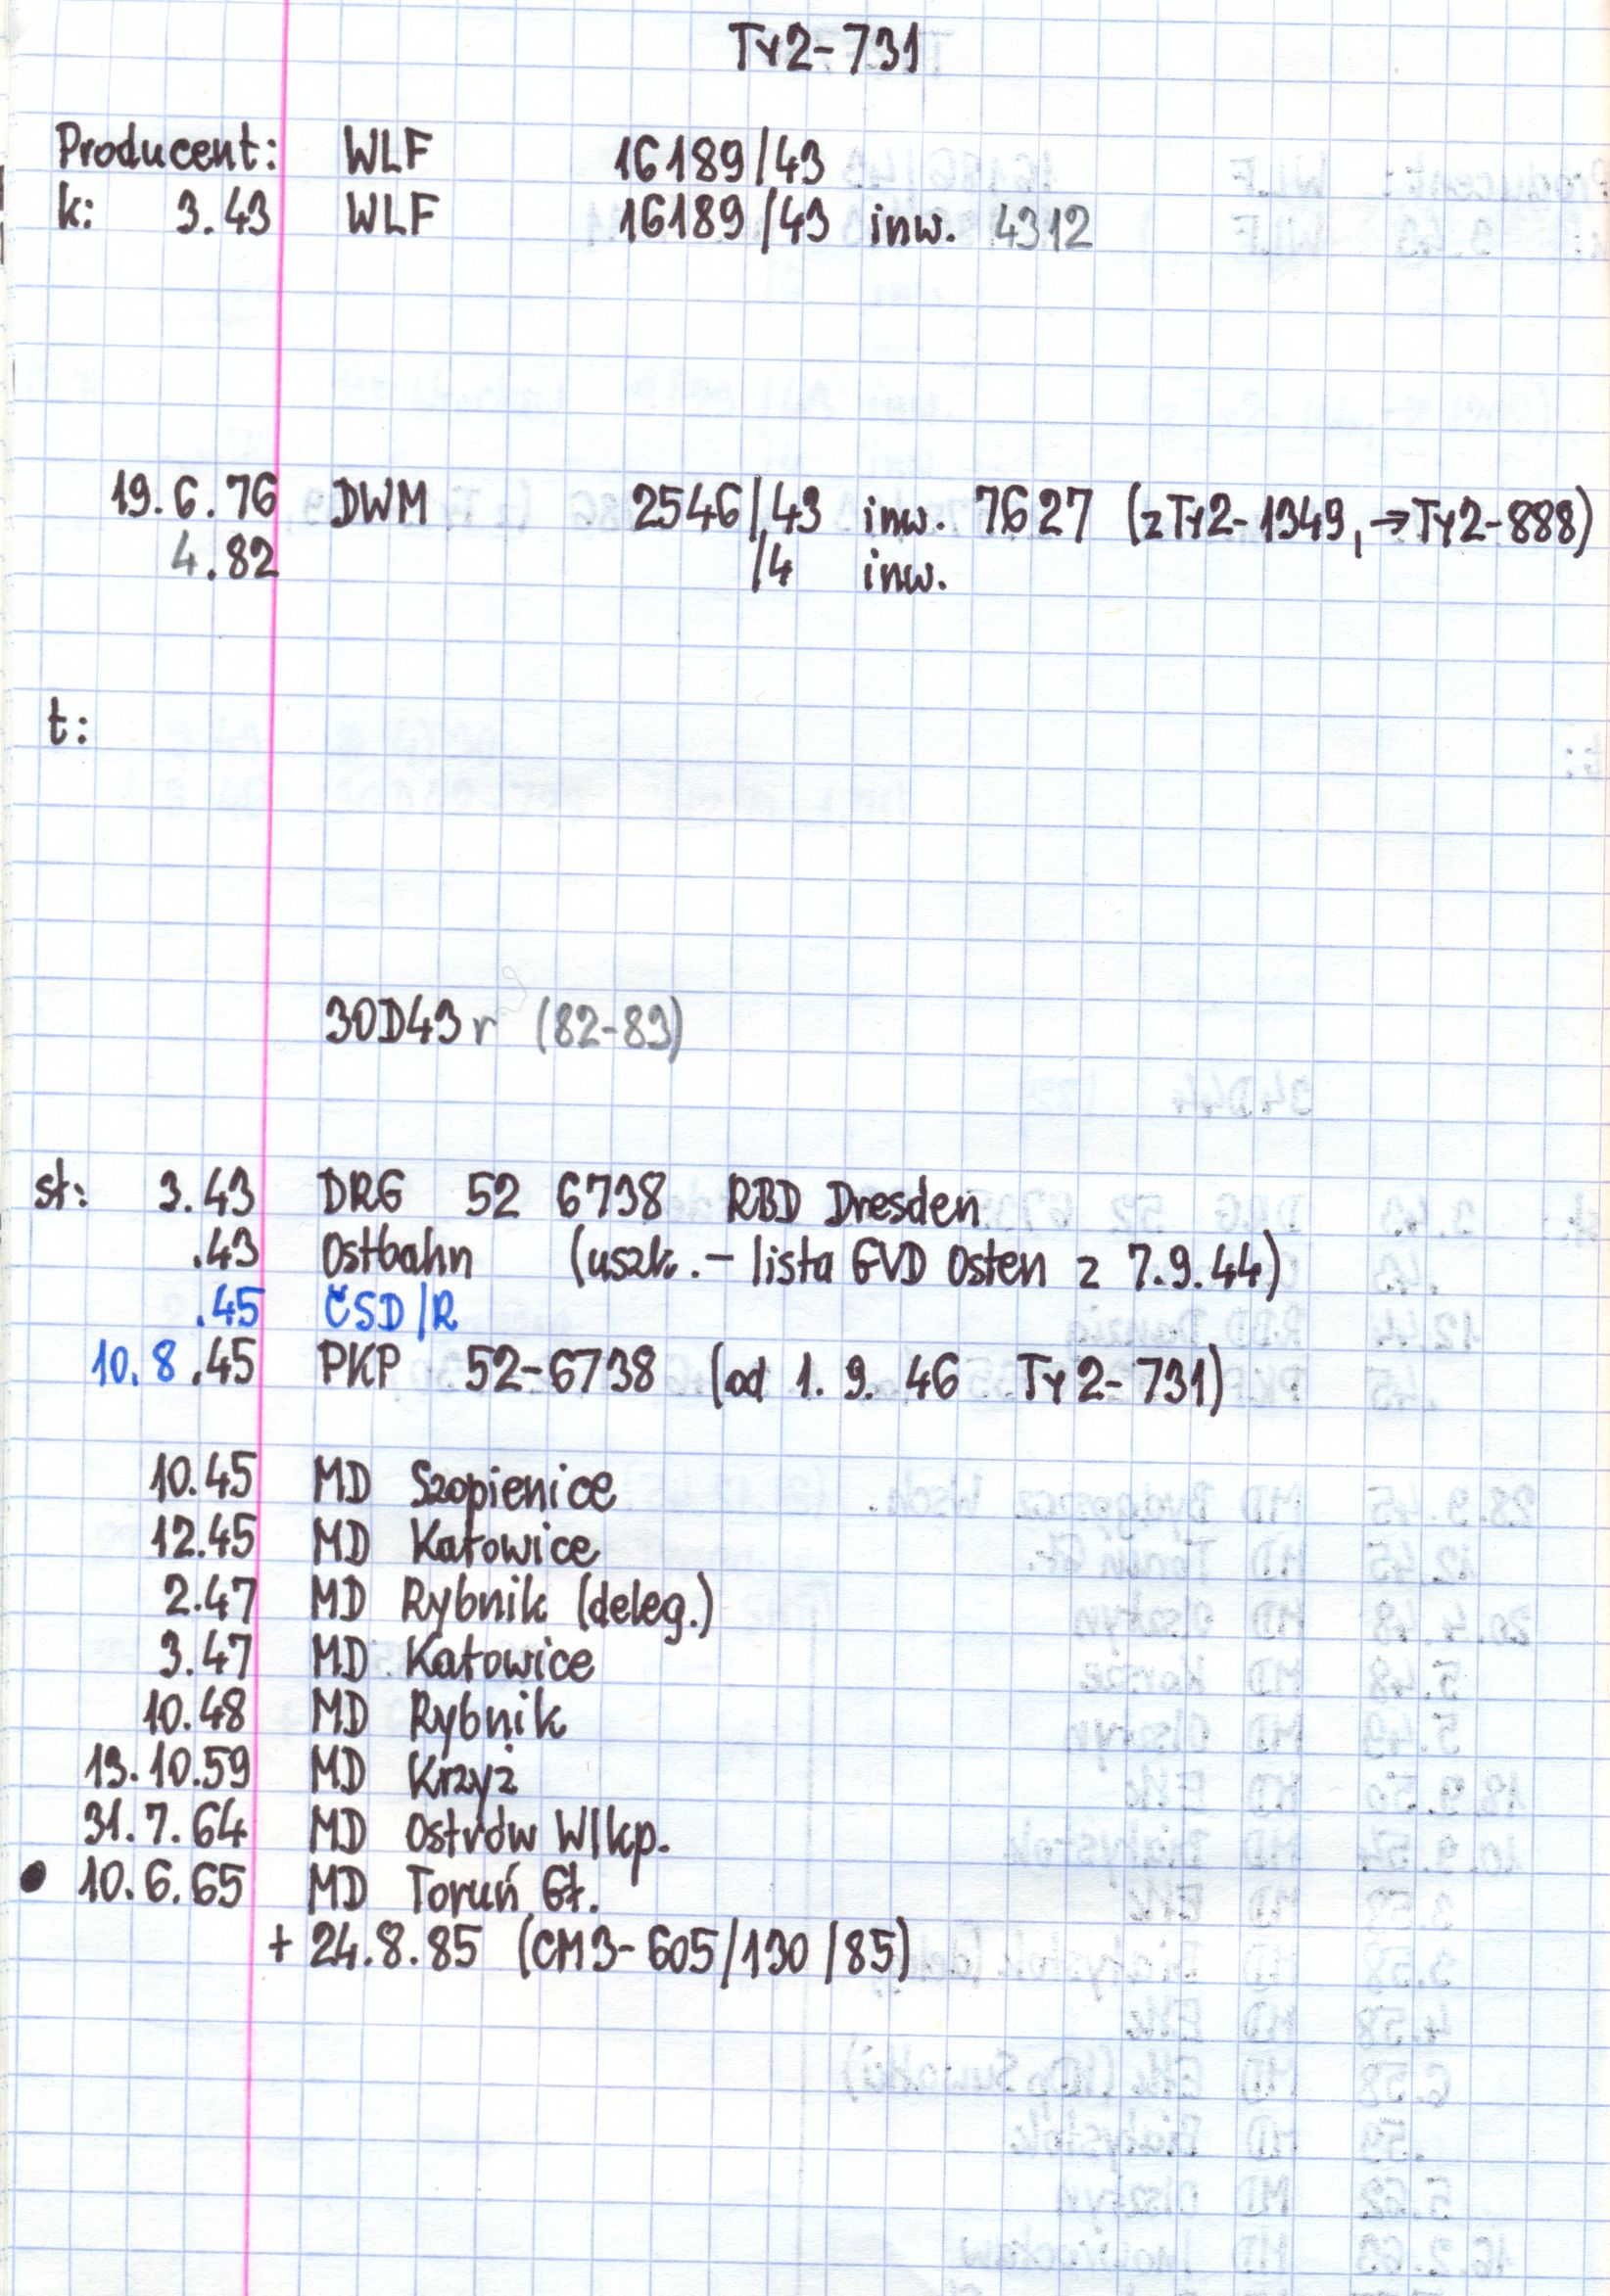 Ty2-731
Producent: WLF 16189/43
k: 3.43 WLF 16189/43 inw. 4312
19.6.76 DWM 2546/43 inw. 7627 (z Ty2-1349, →Ty2-888)
4.82 /4 inw.
t:
30D43 r (82-83)
st: 3.43 DRG 52 6738 RBD Dresden
.43 Ostbahn (uszk. – lista GVD Osten z 7.9.44)
.45 ČSD/R
10.8.45 PKP 52-6738 (od 1.9.46 Ty2-731)
10.45 MD Szopienice
12.45 MD Katowice
2.47 MD Rybnik (deleg.)
3.47 MD Katowice
10.48 MD Rybnik
13.10.59 MD Krzyż
31.7.64 MD Ostrów Wlkp.
● 10.6.65 MD Toruń Gł.
+ 24.8.85 (CM3-605/130/85)